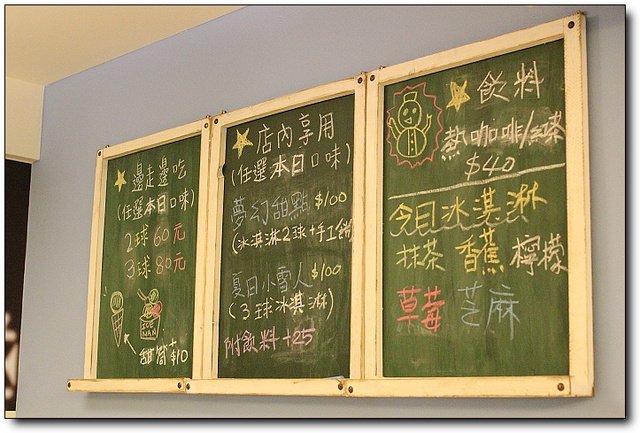 邊走邊吃
(任選本日口味)
2球 60元
3球 80元
ICE
MAN
甜筒+$10
店內享用
(任選本日口味)
夢幻甜點 $100
(冰淇淋2球+手工餅)
夏日小雪人 $100
(3球冰淇淋)
附飲料+25
飲料
熱咖啡/紅茶
$40
今日冰淇淋
抹茶 香蕉 檸檬
草莓 芝麻